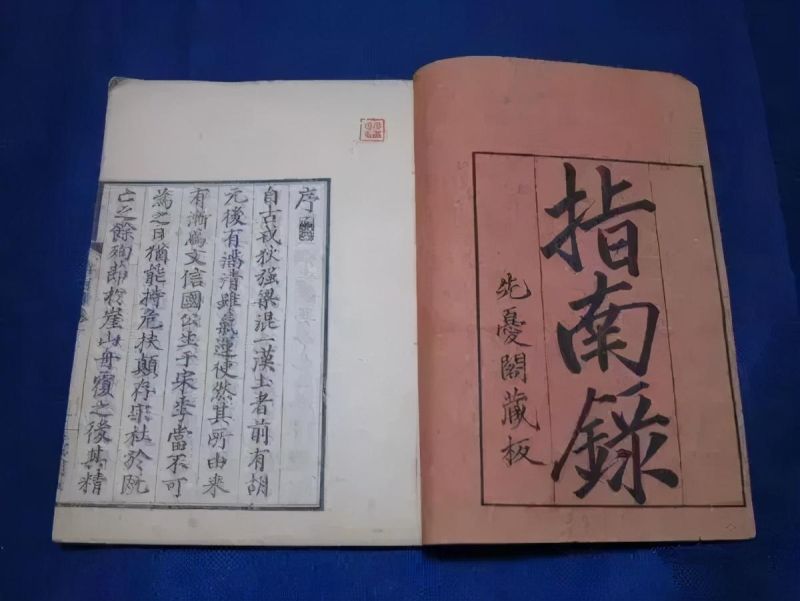 指南錄
先憂閣藏板
序
自古戎狄强梁混一漢土者前有胡
元後有滿清雖氣運使然其所由来
有漸焉文信國公生于宋季當不可
為之日猶能持危扶顛存宗社於既
亡之餘殉節於崖山舟覆之後其精